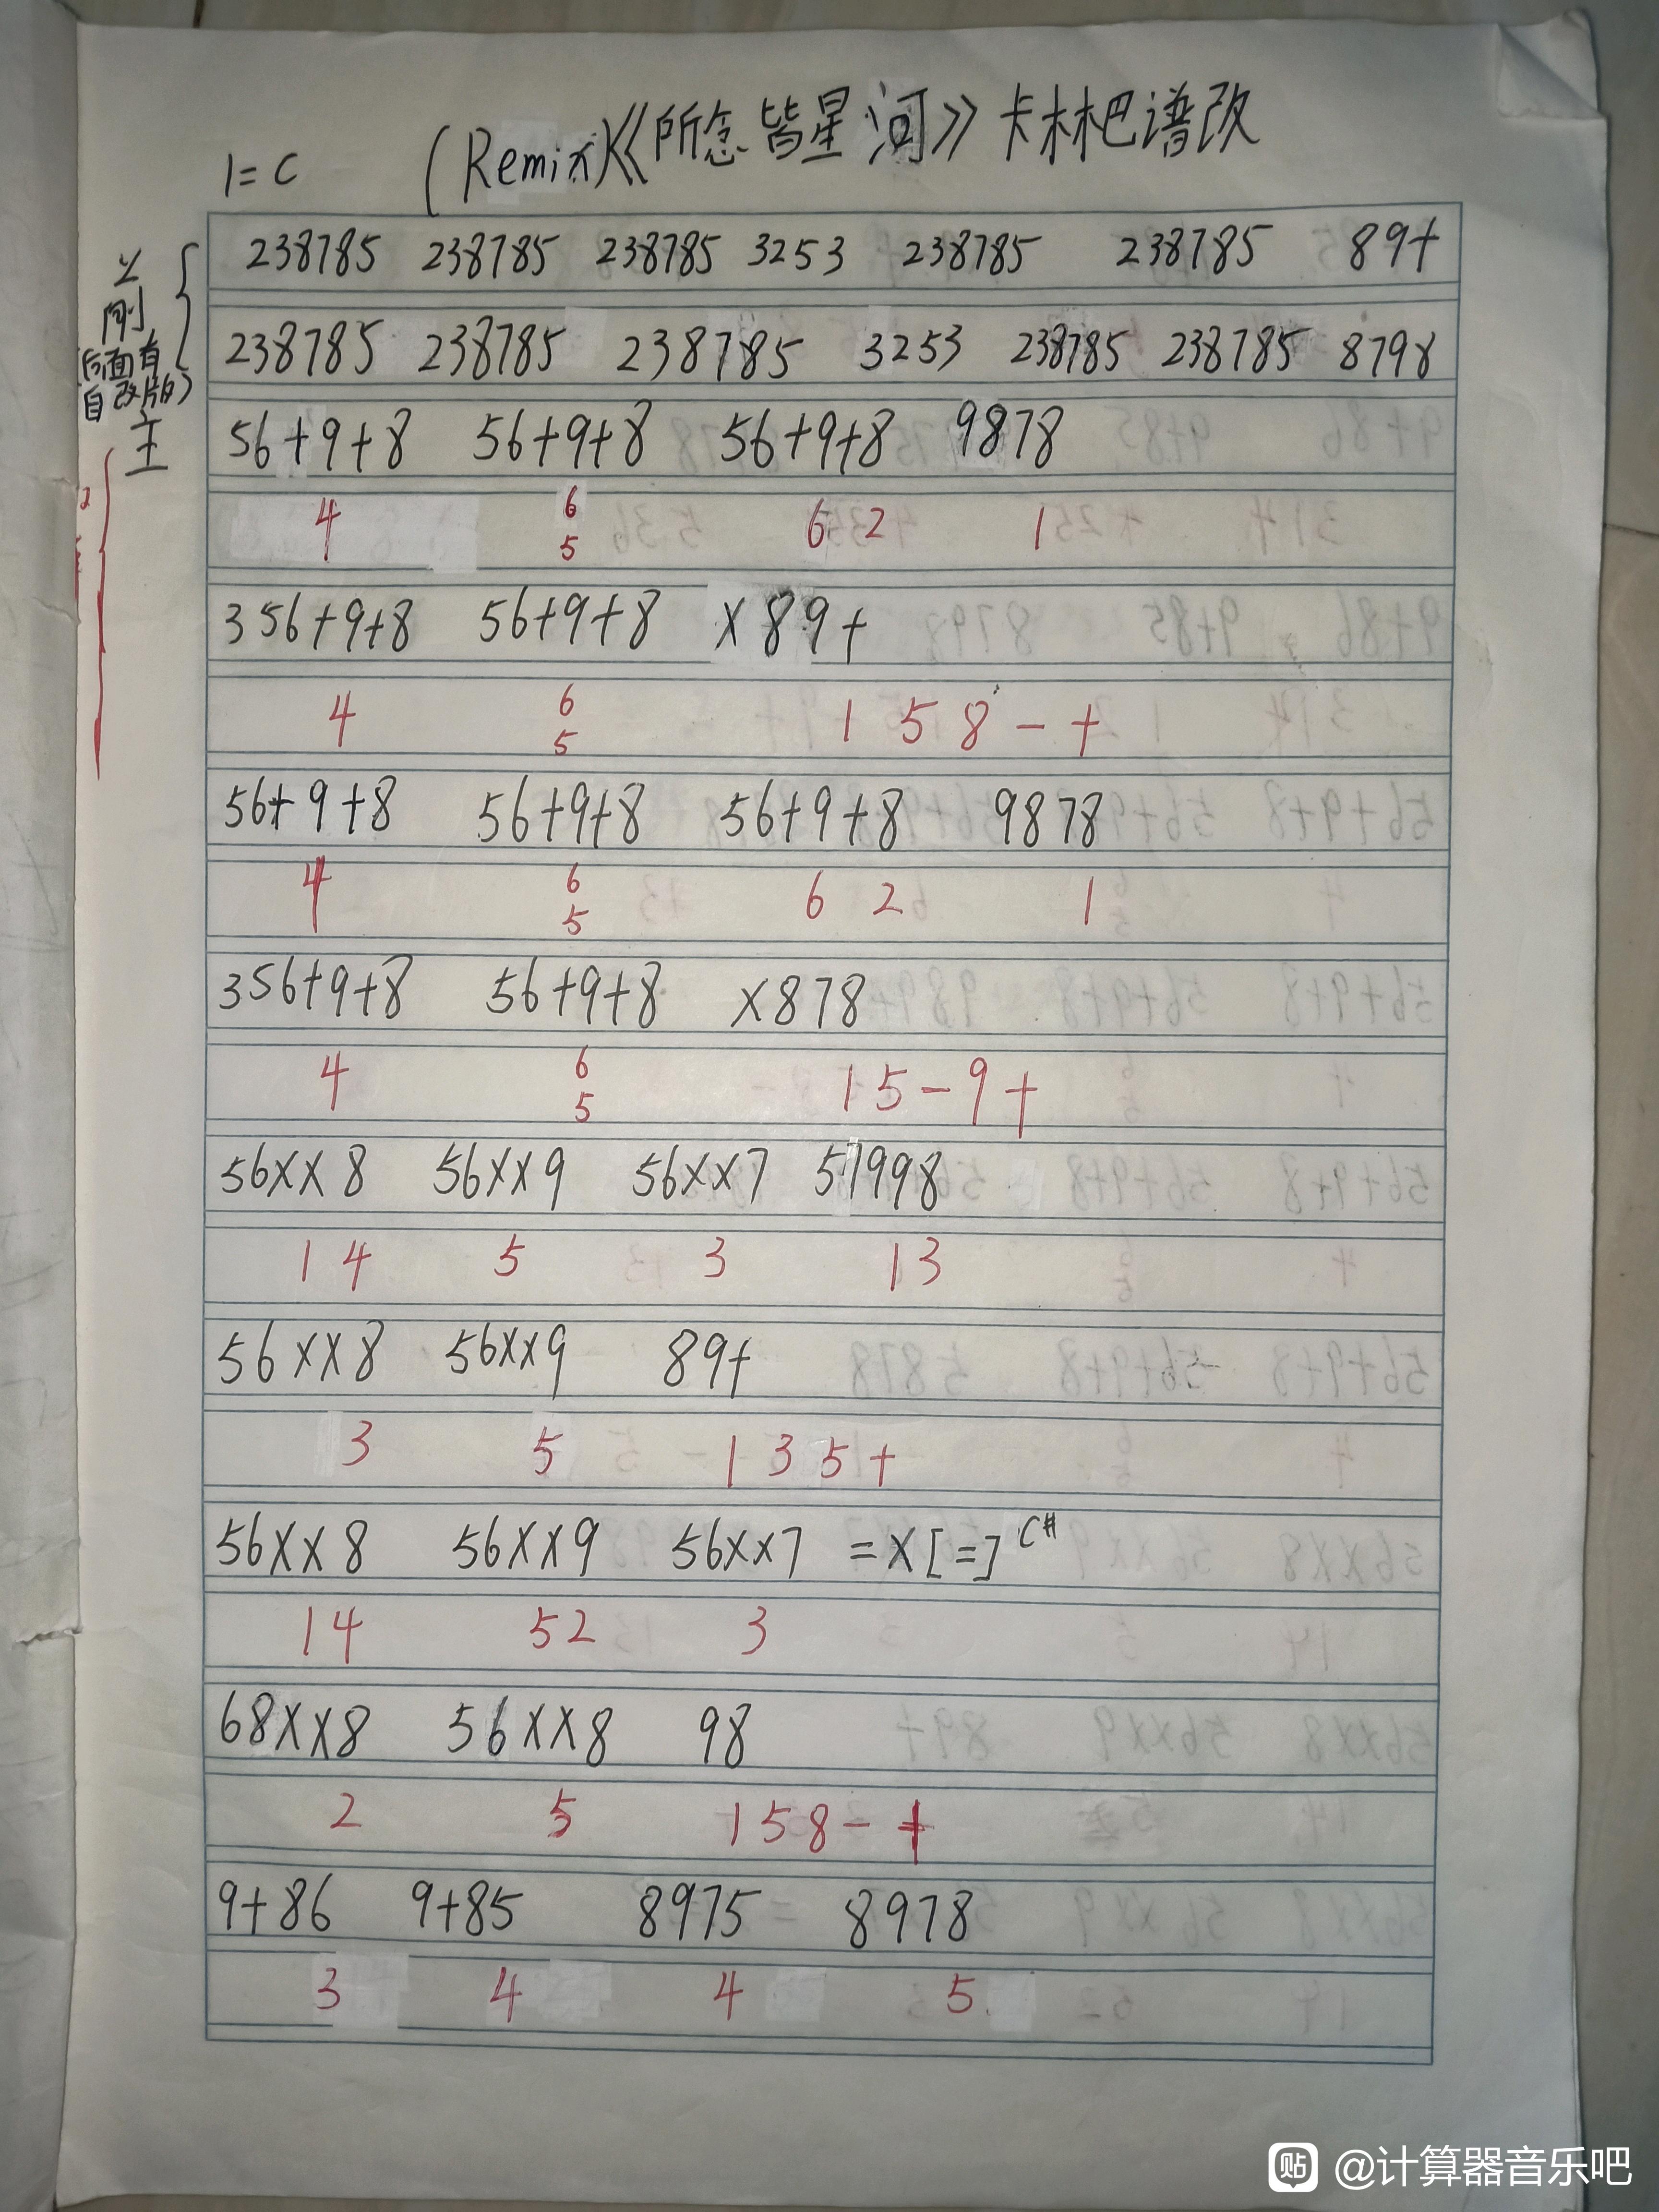 1=C (Remix)《所念皆星河》卡林杷谱改
238785 238785 238785 3253 238785 238785 89+
238785 238785 238785 3253 238785 238785 8798
后面有
自改版的
主
56+9+8 56+9+8 56+9+8 9878
4 6 5 6 2 1
356+9+8 56+9+8 ×89+
4 6 5 1 5 8 - +
56+9+8 56+9+8 56+9+8 9878
4 6 5 6 2 1
356+9+8 56+9+8 ×878
4 6 5 1 5 - 9 +
56××8 56××9 56××7 57998
1 4 5 3 1 3
56××8 56××9 89+
3 5 1 3 5 +
56××8 56××9 56××7 =×[=] C#
1 4 5 2 3
68××8 56××8 98
2 5 1 5 8 - +
9+86 9+85 8975 8978
3 4 4 5
贴 @计算器音乐吧